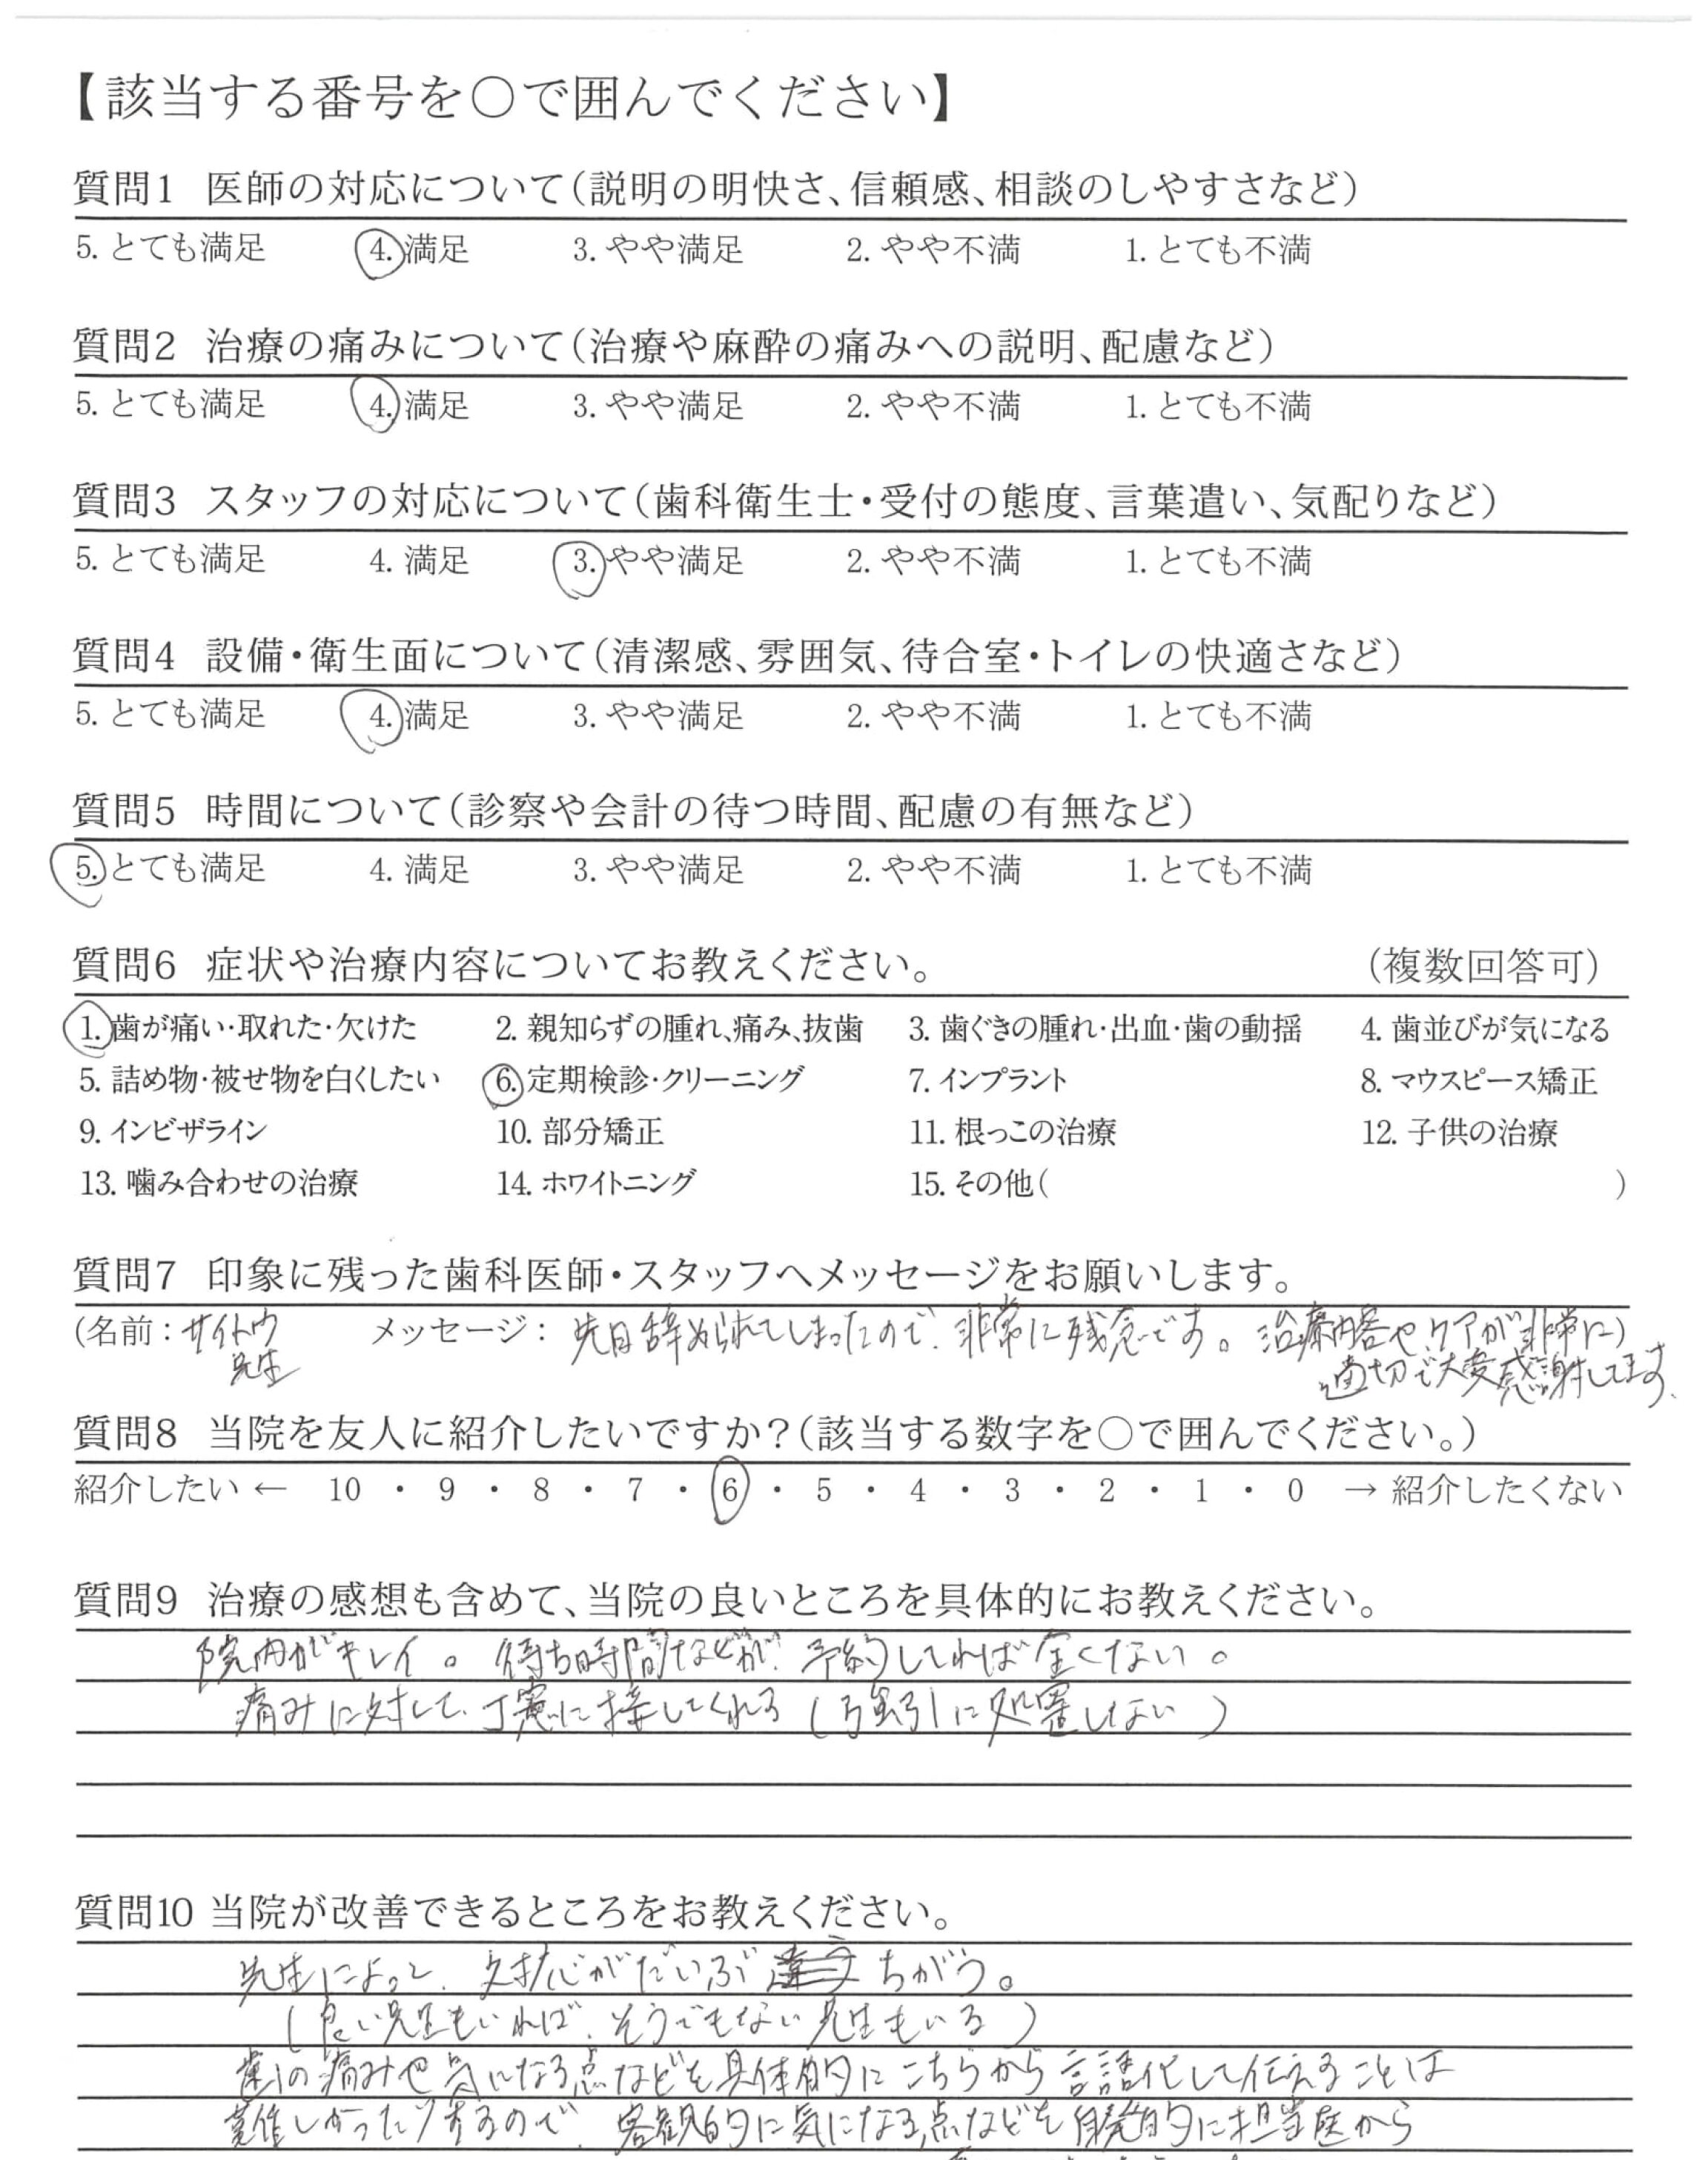 【該当する番号を〇で囲んでください】
質問1 医師の対応について(説明の明快さ、信頼感、相談のしやすさなど)
5. とても満足 4. 満足 3. やや満足 2. やや不満 1. とても不満
質問2 治療の痛みについて(治療や麻酔の痛みへの説明、配慮など)
5. とても満足 4. 満足 3. やや満足 2. やや不満 1. とても不満
質問3 スタッフの対応について(歯科衛生士・受付の態度、言葉遣い、気配りなど)
5. とても満足 4. 満足 3. やや満足 2. やや不満 1. とても不満
質問4 設備・衛生面について(清潔感、雰囲気、待合室・トイレの快適さなど)
5. とても満足 4. 満足 3. やや満足 2. やや不満 1. とても不満
質問5 時間について(診察や会計の待つ時間、配慮の有無など)
5. とても満足 4. 満足 3. やや満足 2. やや不満 1. とても不満
質問6 症状や治療内容についてお教えください。 (複数回答可)
1. 歯が痛い・取れた・欠けた 2. 親知らずの腫れ、痛み、抜歯 3. 歯ぐきの腫れ・出血・歯の動揺 4. 歯並びが気になる
5. 詰め物・被せ物を白くしたい 6. 定期検診・クリーニング 7. インプラント 8. マウスピース矯正
9. インビザライン 10. 部分矯正 11. 根っこの治療 12. 子供の治療
13. 噛み合わせの治療 14. ホワイトニング 15. その他( )
質問7 印象に残った歯科医師・スタッフへメッセージをお願いします。
(名前：サイトウ メッセージ：先日辞められてしまったので、非常に残念です。治療内容やケアが非常に)
先生 適切で大変感謝してます。
質問8 当院を友人に紹介したいですか?(該当する数字を〇で囲んでください。)
紹介したい ← 10 ・ 9 ・ 8 ・ 7 ・ 6 ・ 5 ・ 4 ・ 3 ・ 2 ・ 1 ・ 0 → 紹介したくない
質問9 治療の感想も含めて、当院の良いところを具体的にお教えください。
院内がキレイ。待ち時間などが、予約してれば全くない。
痛みに対して、丁寧に接してくれる(強引に処置しない)
質問10 当院が改善できるところをお教えください。
先生によって、対応がだいぶ ちがう。
(良い先生もいれば、そうでもない先生もいる)
歯の痛みや気になる点などを具体的にこちらから言語化して伝えることは
難しかったりするので、客観的に気になる点などを自発的に担当医から